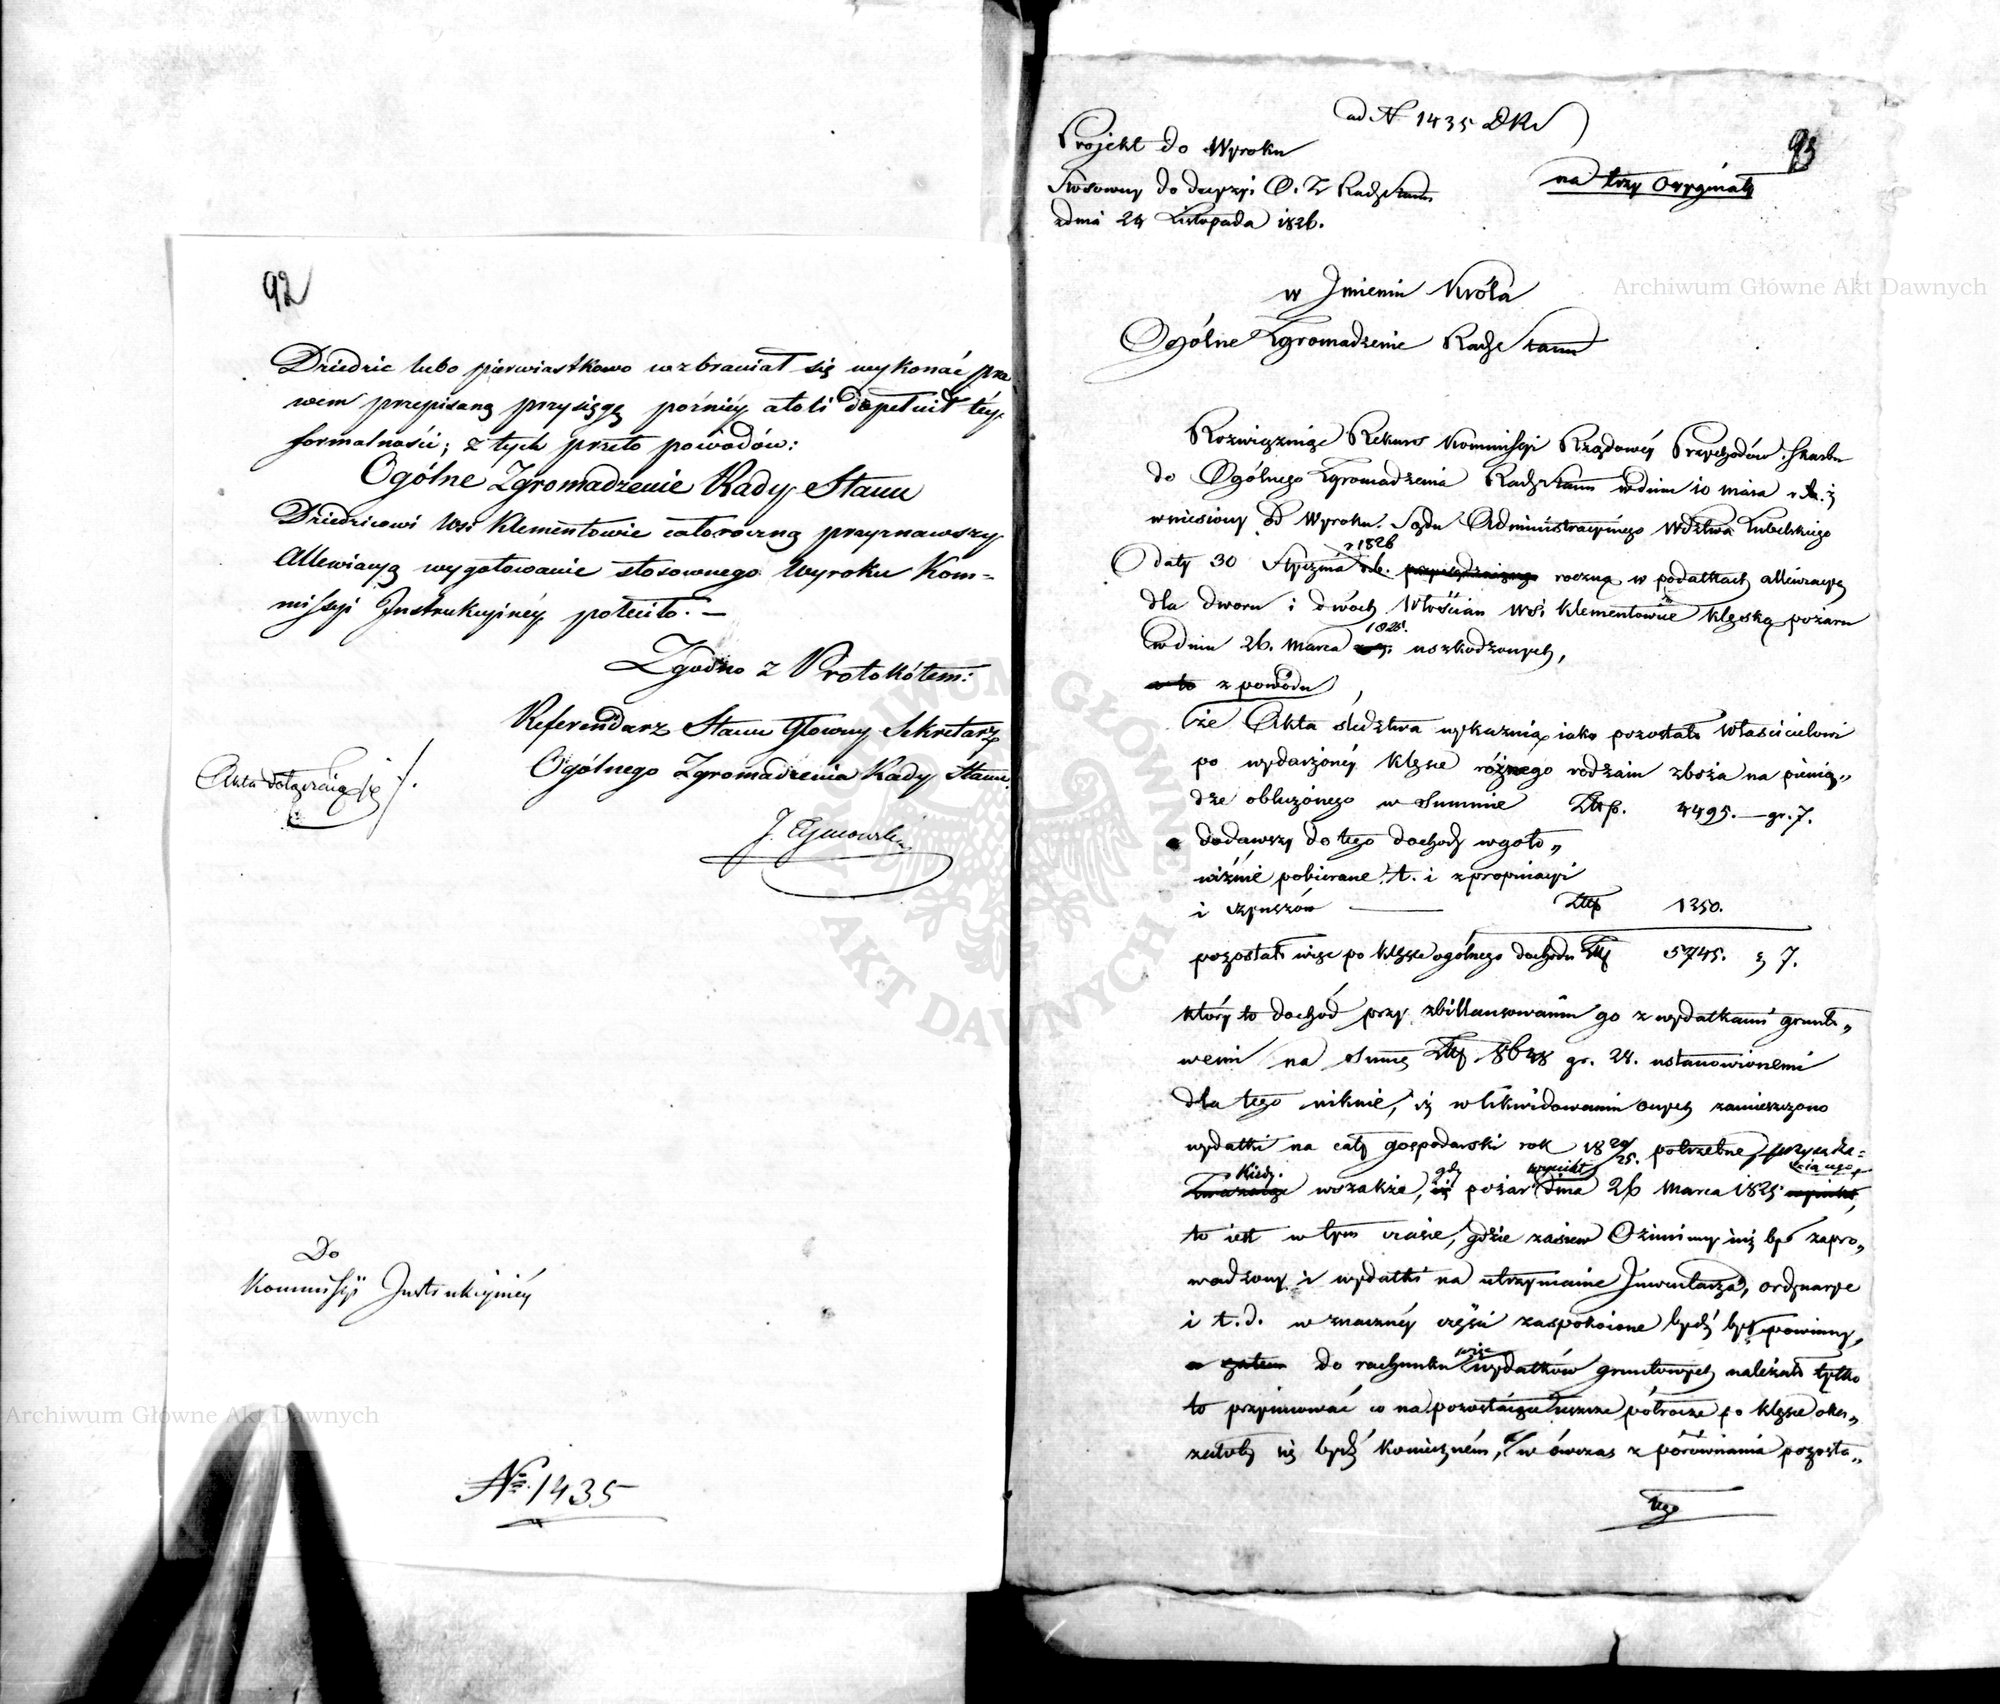 92
Dziedzic lubo pierwiastkowo wzbraniał się wykonać pra
wem przepisaną przysięgę poźniéy atoli dopełnił téy
formalności; z tych przeto powodów:
Ogólne Zgromadzenie Rady Stanu
Dziedzicowi Wsi Klementowic całoroczną przyznawszy
Allewiacyą wygotowanie stosownego Wyroku Kom=
missyi Instrukcyinéy poleciło. —
Zgodno z Protokółem:
Referendarz Stanu Główny Sekretarz
Ogólnego Zgromadzenia Rady Stanu.
Akta dołączaią się
J.
Do
Kommissyi Instrukcyinéy
No. 1435
ad N 1435 DKI
93
Projekt do Wyroku
Stósowny do decyzyi O. Z Rady Stanu
z dnia 24 Listopada 1826.
na trzy Oryginały
w Jmieniu Króla
Ogólne Zgromadzenie Rady Stanu
Rozwiązuiąc Rekurs Kommissyi Rządowéy Przychodów i Skarbu
do Ogólnego Zgromadzenia Rady Stanu w dniu 10 maia r. b.
wniesiony od Wyroku Sądu Administracyinego Wdztwa Lubelskiego
r 1826
daty 30 Stycznia roczną w podatkach allewiacyą
dla dworu i dwóch Włościan wsi Klementowic klęską pożaru
1825.
w dniu 26. Marca uszkodzonych,
z powodu
że Akta śledztwa wykazuią iako pozostało Właścicielowi
po wydarzonéy klęsce różnego rodzaiu zboża na pienią„
dze obliczonego w Summie Złtp. 4495. — gr. 7.
dodawszy do tego dochody w goto„
wiźnie pobierane t. i z propinacyi
i czynszów — Złtp 1250.
pozostało więc po klęsce ogólnego dochodu Złtp 5745. g 7.
który to dochód przy zbillansowaniu go z wydatkami grunto„
wemi na Summę Złtp 8648 gr. 24. ustanowionemi
dla tego niknie, iż w likwidowaniu onych zamieszczono
wydatki na cały gospodarski rok 1824/25. potrzebne,
Kiedy. gdy wyniknął
wszakże, pożar dnia 26 Marca 1825
to iest w tym czasie, gdzie zasiew Oziminy iuż był zapro„
wadzony i wydatki na utrzymanie Inwentarza, ordynarye
i t. d. w znacznéy części zaspokoione bydź były powinny,
więc
do rachunku wydatków gruntowych należało tylko
to przyimować co na pozostaiące ieszcze półrocze po klęsce oka„
załoby się bydź konieczném, w ówczas z porównania pozosta„
łego